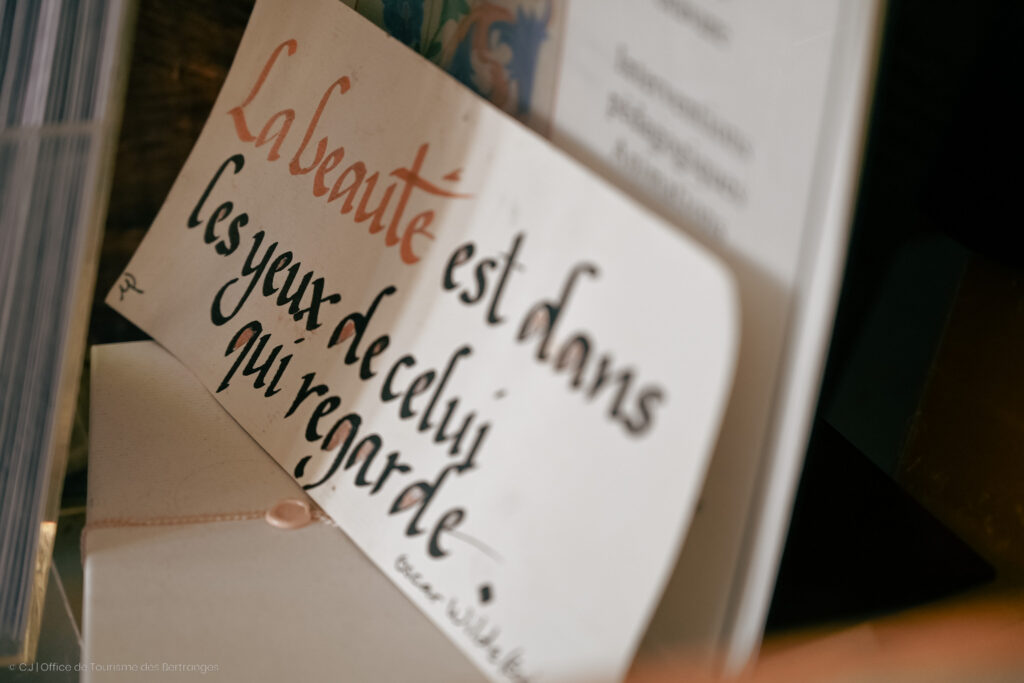 La beauté est dans
les yeux de celui
qui regarde.
Oscar Wilde
© CJ | Office de Tourisme des Bertranges